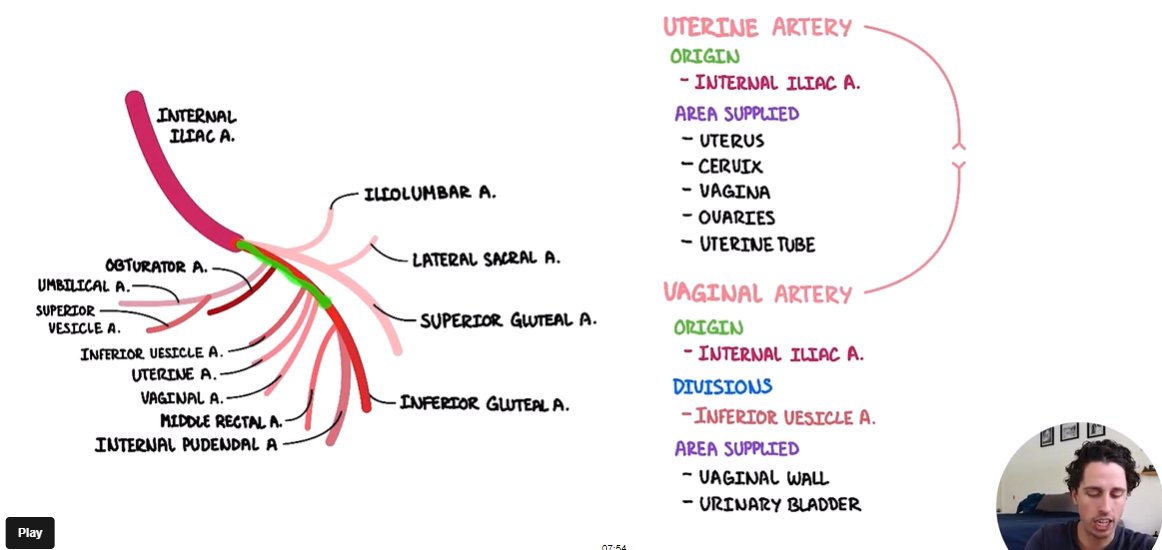 INTERNAL
ILIAC A.
ILIOLUMBAR A.
LATERAL SACRAL A.
SUPERIOR GLUTEAL A.
INFERIOR GLUTEAL A.
OBTURATOR A.
UMBILICAL A.
SUPERIOR
VESICLE A.
INFERIOR VESICLE A.
UTERINE A.
VAGINAL A.
MIDDLE RECTAL A.
INTERNAL PUDENDAL A
UTERINE ARTERY
ORIGIN
- INTERNAL ILIAC A.
AREA SUPPLIED
- UTERUS
- CERVIX
- VAGINA
- OVARIES
- UTERINE TUBE
VAGINAL ARTERY
ORIGIN
- INTERNAL ILIAC A.
DIVISIONS
- INFERIOR VESICLE A.
AREA SUPPLIED
- VAGINAL WALL
- URINARY BLADDER
Play
07:54